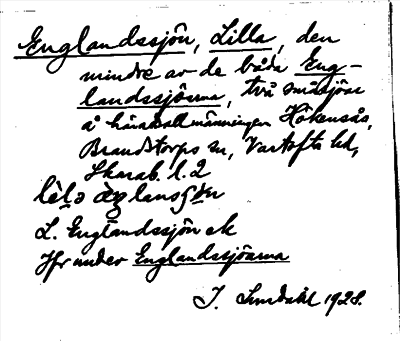 Englandssjön, Lilla, den
mindre av de båda Eng-
landssjöarna, två småsjöar
å häradsallmänningen Hökensås,
Brandstorps sn, Vartofta hd,
Skarab. l. 2
L. Englandssjön ek
Jfr under Englandssjöarna
J. 1928.